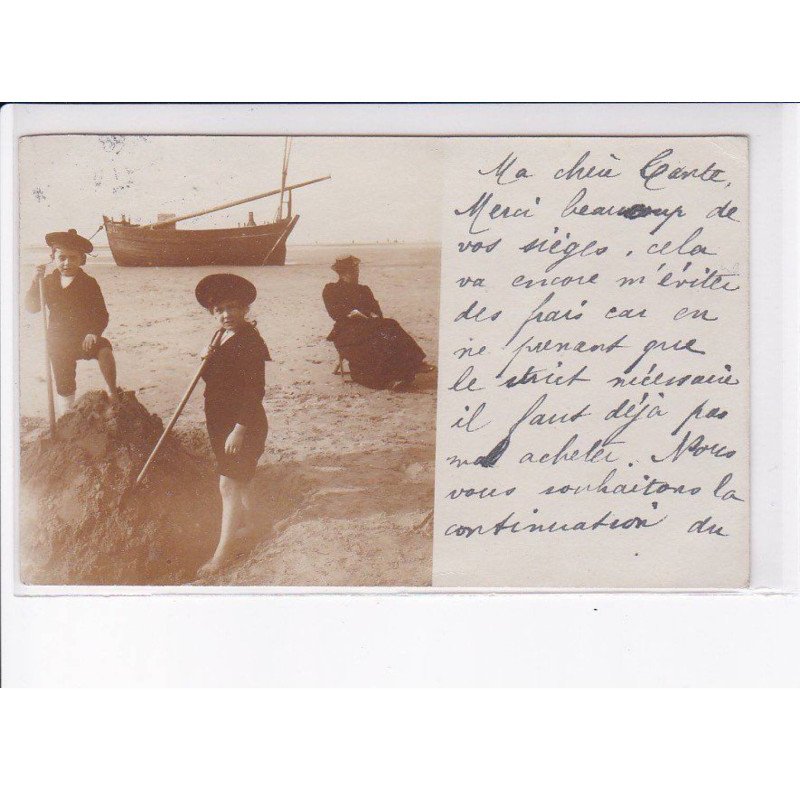 Ma chère Tante,
Merci beaucoup de
vos sièges, cela
va encore m'éviter
des frais car en
ne prenant que
le strict nécessaire
il faut déjà pas
mal acheter. Nous
vous souhaitons la
continuation du